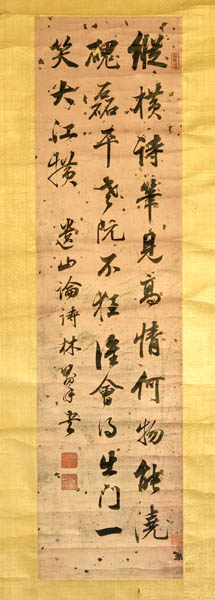 縱橫詩筆見高情何物能澆
磈磊平老阮不狂誰會得出門一
笑大江橫 遺山論詩林書